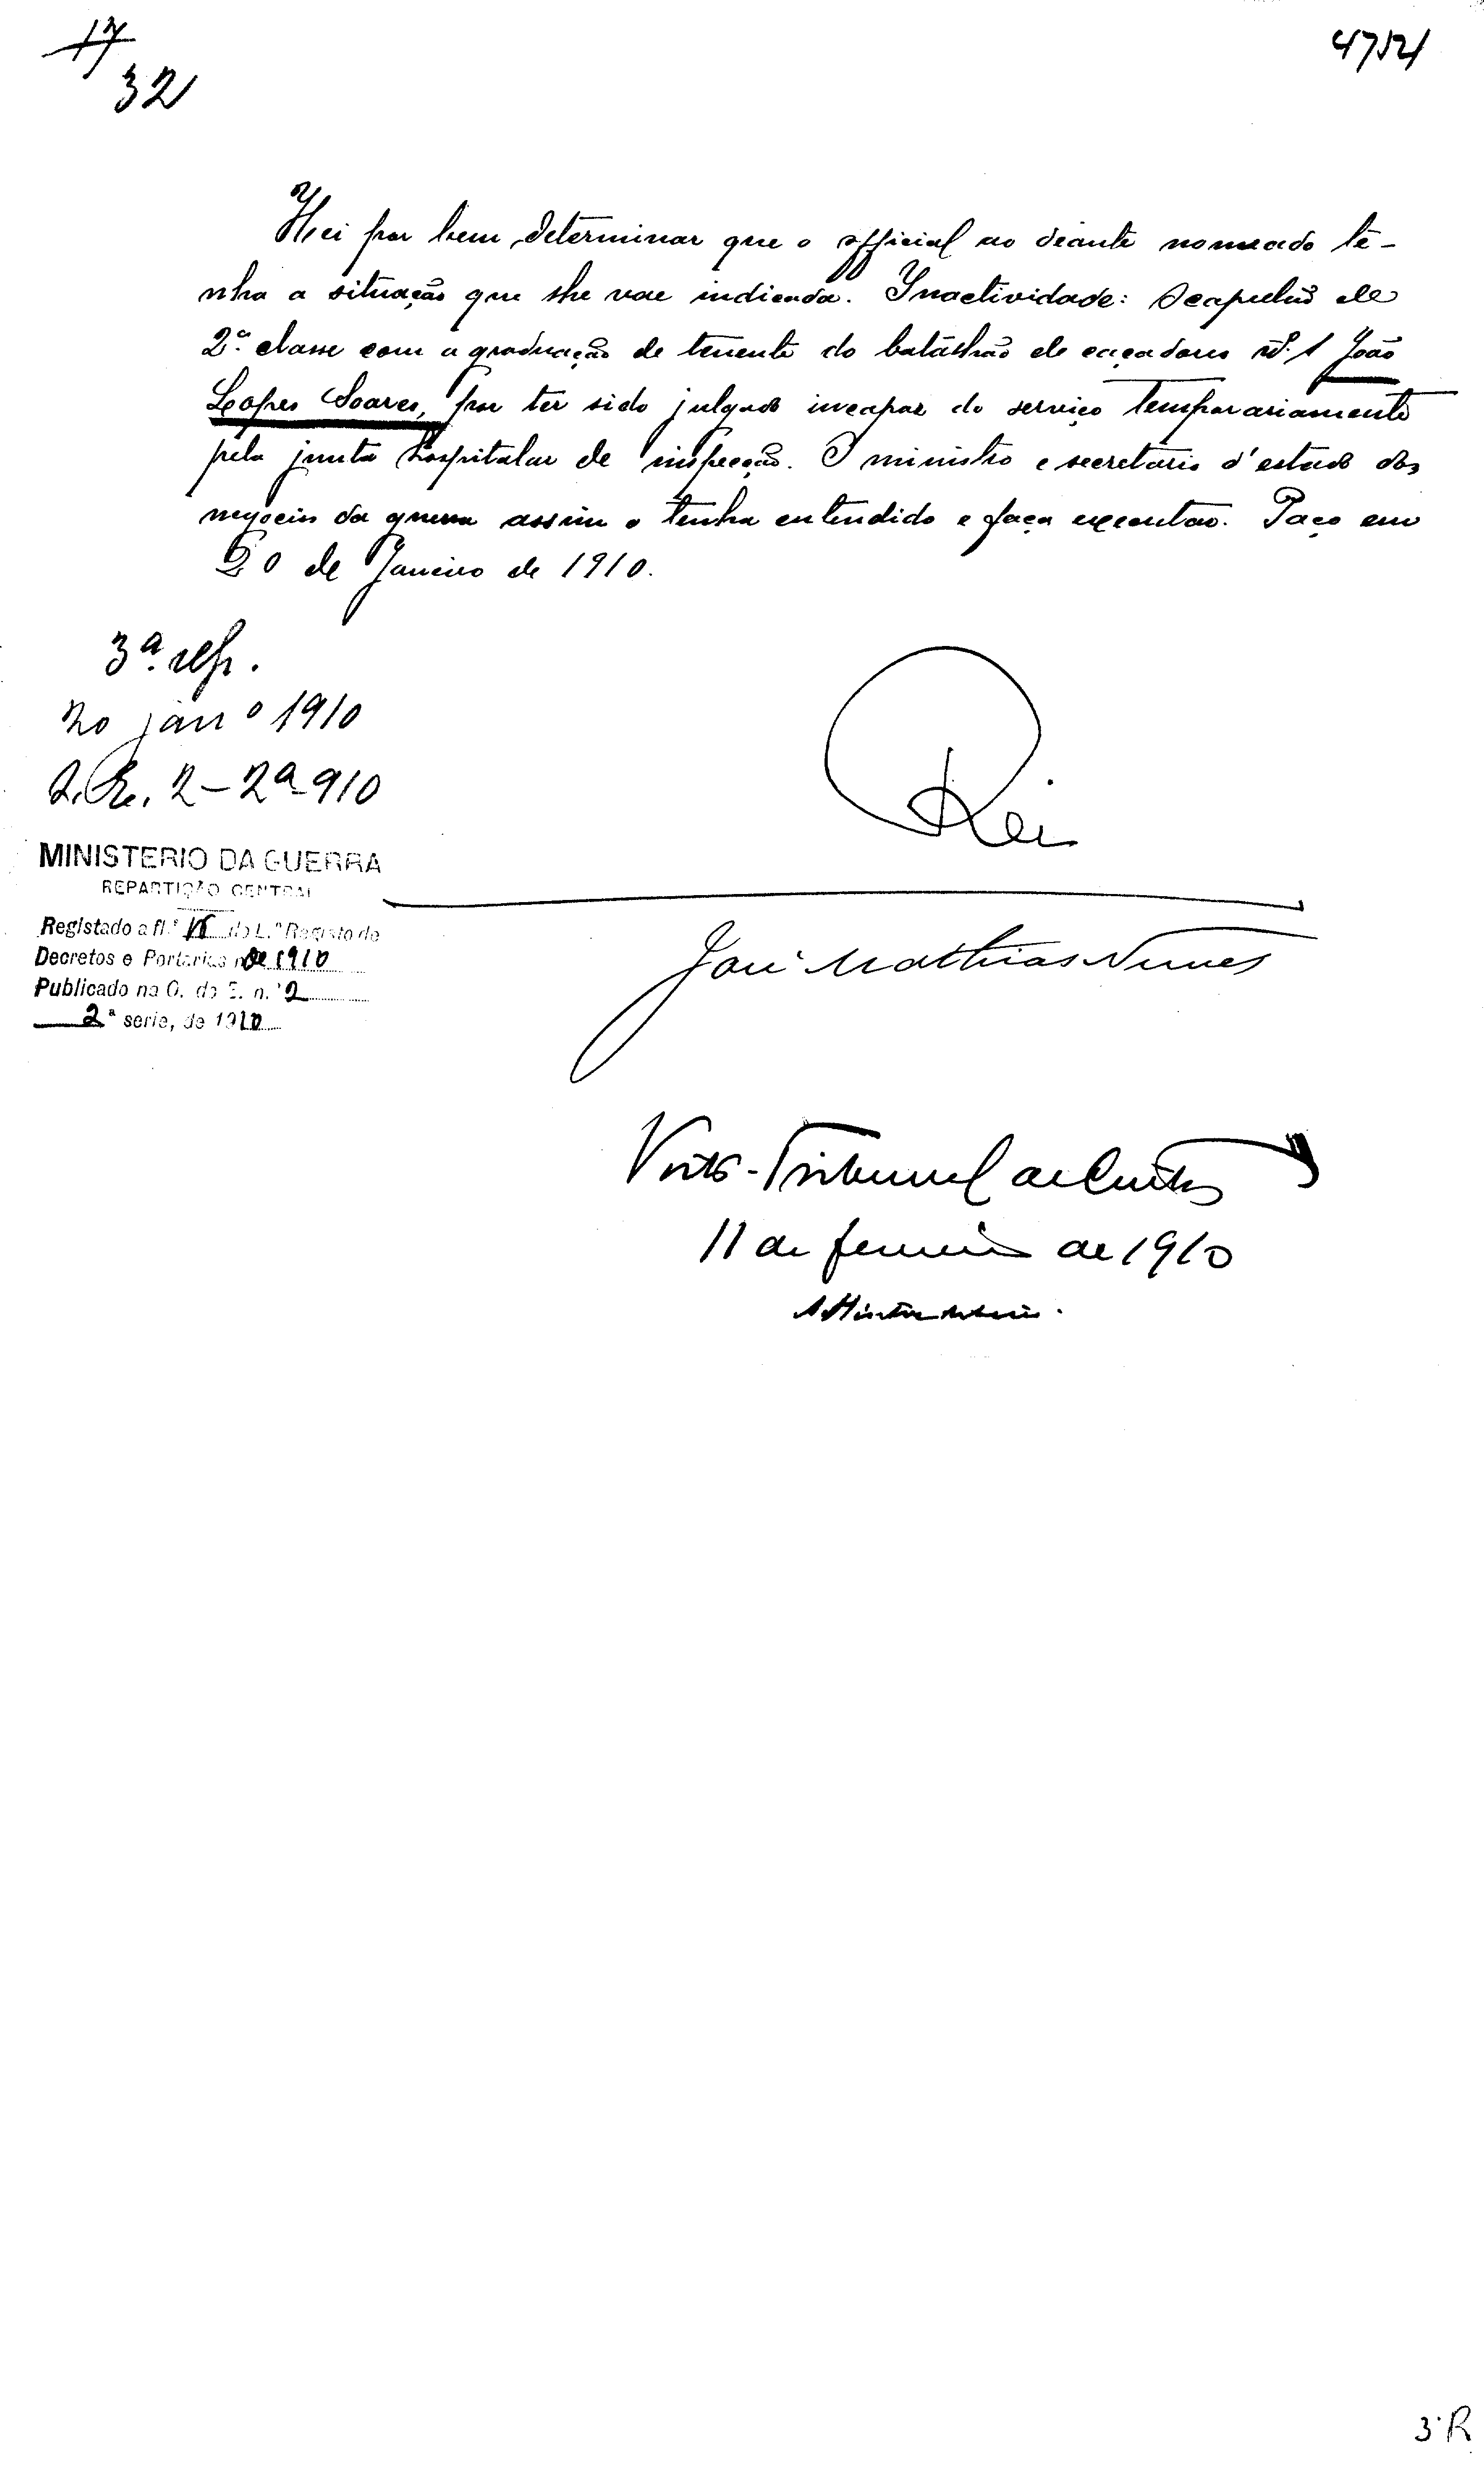 17
32
4751
Hei por bem determinar que o official ao deante nomeado te-
nha a situação que lhe vae indicada. Inactividade: Capellão de
2ª classe com a graduação de tenente do batalhão de caçadores nº 1 João
Lopes Soares, por ter sido julgado incapaz do serviço temporariamente
pela junta hospitalar de inspecção. O ministro e secretario d'estado dos
negocios da guerra assim o tenha entendido e faça executar. Paço em
20 de Janeiro de 1910.
3ª rep.
20 janº 1910
O.E. 2-2ª-910
Rei
MINISTERIO DA GUERRA
REPARTIÇÃO CENTRAL
Registado a fl.ˢ do L.º Registo de
Decretos e Portarias de 1910
Publicado na O. do E. n.º 2
2ª serie, de 1910
José Mathias Nunes
Visto-Tribunal de Contas
11 de fevereiro de 1910
3ª R